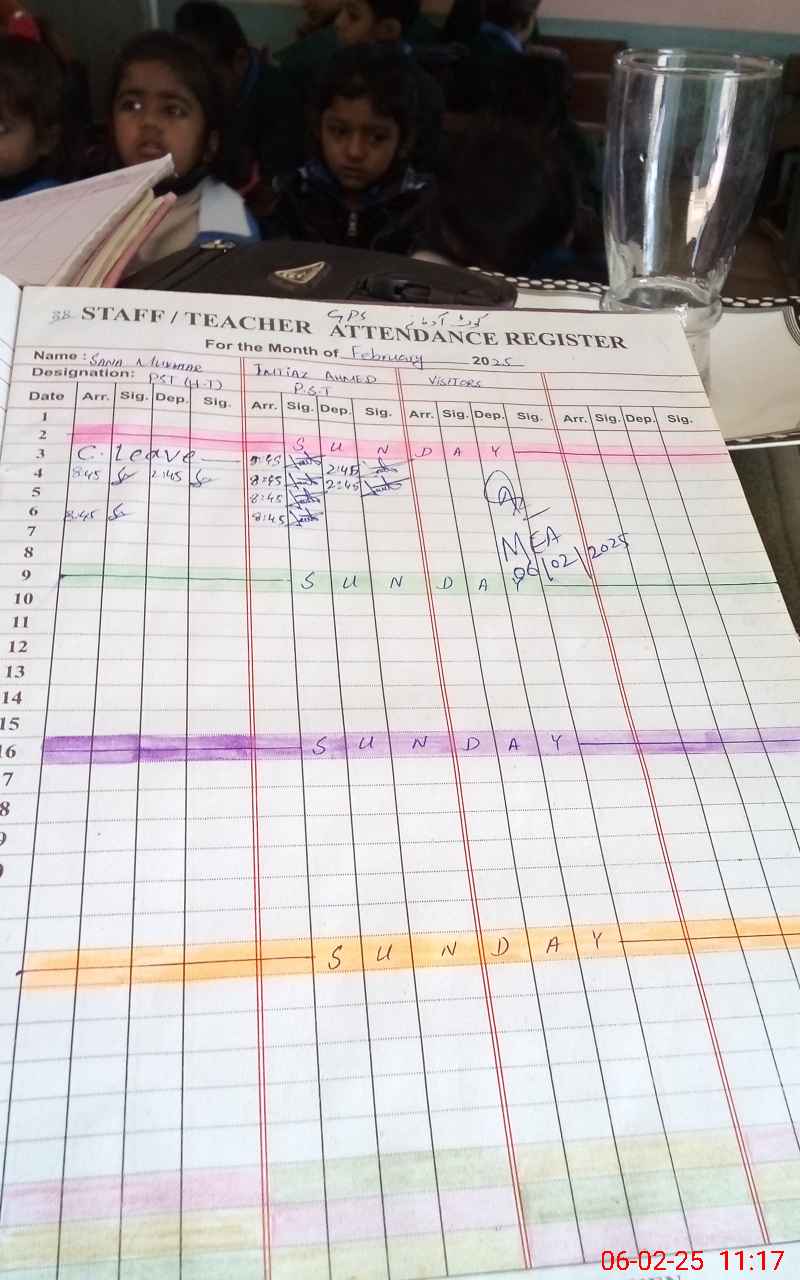 38 STAFF / TEACHER ATTENDANCE REGISTER
GPS
For the Month of February 2025
Name : SANA MUKHTAR IMTIAZ AHMED VISITORS
Designation: PST (H.T) P.S.T
Date Arr. Sig. Dep. Sig. Arr. Sig. Dep. Sig. Arr. Sig. Dep. Sig. Arr. Sig. Dep. Sig.
1
2 S U N D A Y
3 C. leave 8:45 2:45
4 8:45 2:45 8:45 2:45
5 8:45
6 8:45 8:45
7 MEA
8 06/02/2025
9 S U N D A Y
10
11
12
13
14
15
16 S U N D A Y
7
8
9
S U N D A Y
06-02-25 11:17